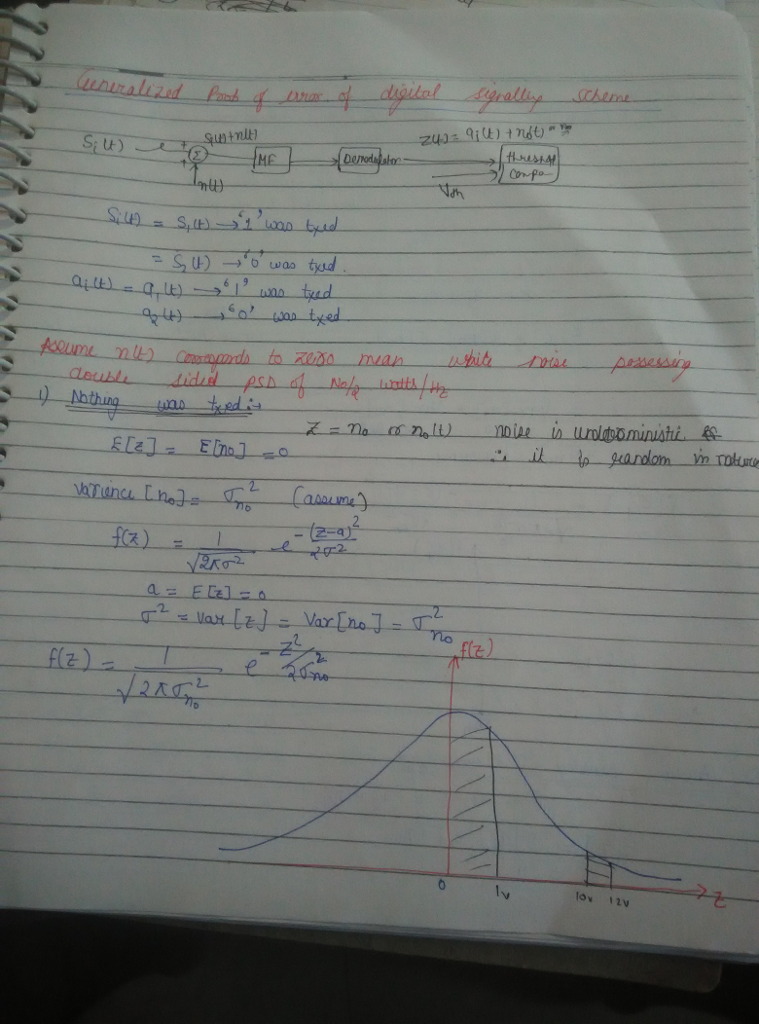 Generalized Prob of error of digital signalling scheme
Si(t) + Σ + Si(t)+n(t) MF Demodulator z(t) = ai(t) + no(t) threshold compa
n(t) Vth
Si(t) = S1(t) → '1' was txed
= S2(t) → '0' was txed.
ai(t) = a1(t) → '1' was txed
a2(t) → '0' was txed
Assume n(t) corresponds to zero mean white noise possessing
double sided PSD of No/2 watts/Hz
1) Nothing was txed :→
Z = no or no(t) noise is undeterministic
E[z] = E[no] = 0 ∴ it is random in nature
Varience [no] = σno² (assume)
f(z) = 1/√2πσ² e^-(z-a)²/2σ²
a = E[z] = 0
σ² = Var[z] = Var[no] = σno²
f(z) = 1/√2πσno² e^-z²/2σno²
f(z)
0 1v 10v 12v z